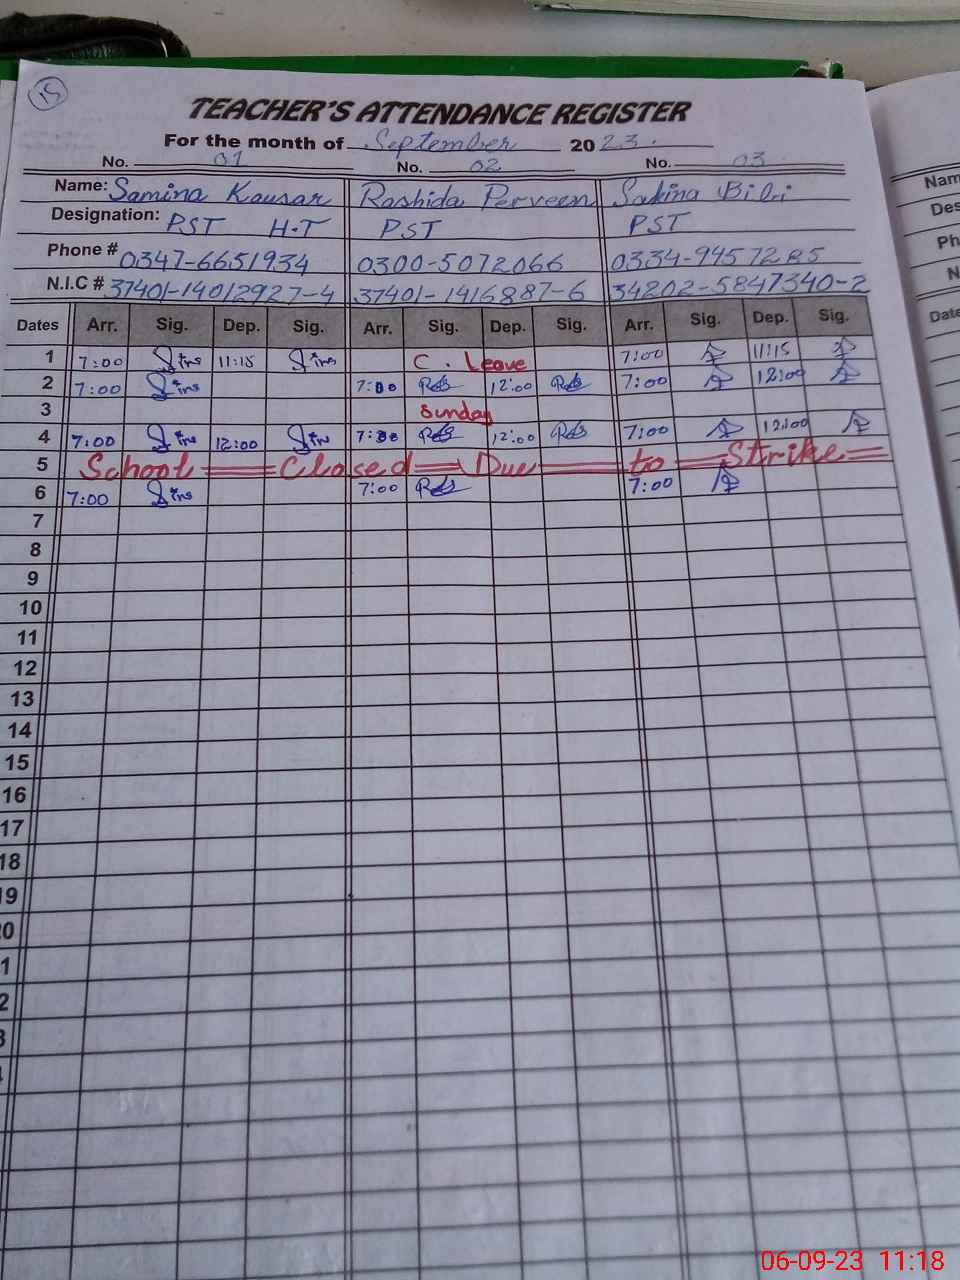 15
TEACHER'S ATTENDANCE REGISTER
For the month of September 2023.
No. 01 No. 02 No. 03
Name: Samina Kausar Rashida Perveen Sakina Bibi
Designation: PST H.T PST PST
Phone # 0347-6651934 0300-5072066 0334-9457285
N.I.C # 37401-14012927-4 37401-1416887-6 34202-5847340-2
Dates Arr. Sig. Dep. Sig. Arr. Sig. Dep. Sig. Arr. Sig. Dep. Sig.
1 7:00 11:15 C. Leave 7:00 11:15
2 7:00 7:00 12:00 7:00 12:00
3 Sunday
4 7:00 12:00 7:00 12:00 7:00 12:00
5 School Closed Due to Strike
6 7:00 7:00 7:00
7
8
9
10
11
12
13
14
15
16
17
18
19
0
1
2
3
Nam
Des
Ph
N
Date
06-09-23 11:18